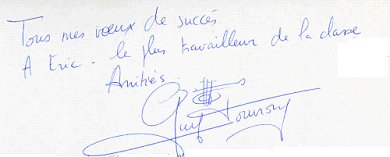 Tous mes vœux de succès
A Eric. le plus travailleur de la classe
Amitiés
Guy